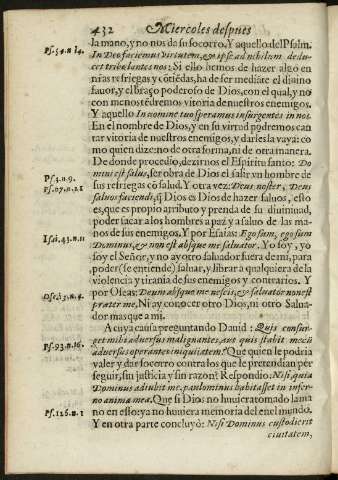 432 Miercoles despues
la mano, y no nos da su socorro. Y aquello del Psalm.
Ps. 54. n 14. In Deo faciemus virtutem, & ipse ad nihilum deducet tribulantes nos: Si ello hemos de hazer algo en
nras refriegas y cōtiedas, ha de ser mediāte el diuino
fauor, y el braço poderoso de Dios, con el qual, y no
con menos tēdremos vitoria de nuestros enemigos.
Y aquello In nomine tuo speramus insurgentes in nos.
En el nombre de Dios, y en su virtud podremos can
tar vitoria de nuestros enemigos, y darles la vaya: co
mo quien dize: no de otra forma, ni de otra manera.
De donde procedio, dezirnos el Espiritu santo: Do
Ps. 3. n. 9. mini est salus, ser obra de Dios el salir vn hombre de
sus refriegas cō salud. Y otra vez: Deus noster, Deus
saluos faciendi, q̄ Dios es Dios de hazer saluos, esto
es, que es propio atributo y prenda de su diuinidad,
poder sacar a los hombres a paz y a saluo de las ma-
nos de sus enemigos. Y por Esaias: Ego sum, ego sum
Isai. 43. n. 11 Dominus, & non est absque me saluator. Yo soy, yo
soy el Señor, y no ay otro saluador fuera de mi, para
poder (se entiende) saluar, y librar a qualquiera de la
violencia y tirania de sus enemigos y contrarios. Y
por Oseas: Deum absque me nescis, & saluator non est
Ose. 13. n. 4. præter me, Ni ay conocer otro Dios, ni otro Salua-
dor mas que a mi.
A cuya causa preguntando Dauid: Quis consur-
get mihi aduersus malignantes, aut quis stabit mecū
Ps. 93. n. 16. aduersus operantes iniquitatem? Que quien le podria
valer y dar socorro contra los que le pretendian per
seguir, sin justicia y sin razon? Respondio: Nisi, quia
Dominus adiubit me, paulominus habitasset in infer-
no anima mea. Que si Dios no huuiera tomado la ma
no en esto: ya no huuiera memoria del en el mundo.
Ps. 126. n. 1 Y en otra parte concluyò: Nisi Dominus custodierit
ciuitatem,